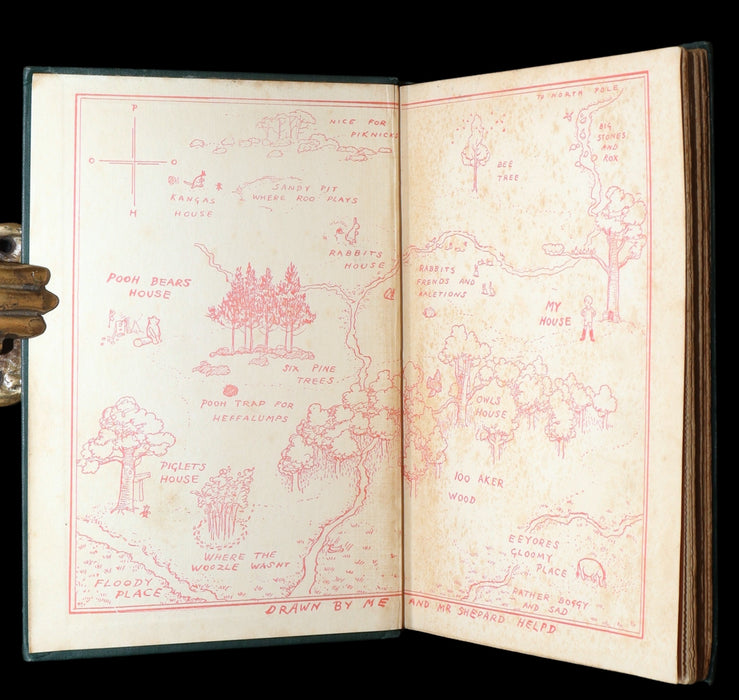 P
O
O
H
NICE FOR
PIKNICKS
KANGAS
HOUSE
SANDY PIT
WHERE ROO PLAYS
RABBITS
HOUSE
POOH BEARS
HOUSE
SIX PINE
TREES.
POOH TRAP FOR
HEFFALUMPS
PIGLETS
HOUSE
WHERE THE
WOOZLE WASNT
FLOODY
PLACE
TO NORTH POLE
BIG
STONES
AND
ROX
BEE
TREE
RABBITS
FRENDS AND
RALETIONS
MY
HOUSE
OWLS
HOUSE
100 AKER
WOOD
EEYORES
GLOOMY
PLACE
RATHER BOGGY
AND SAD
DRAWN BY ME AND MR SHEPARD HELPD